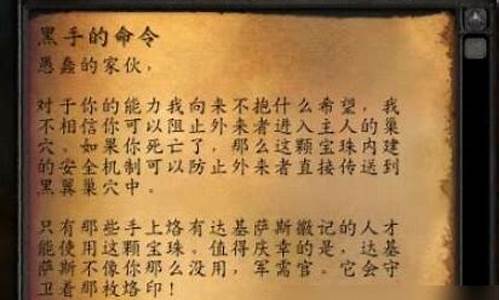 黑手的命令
愚蠢的家伙，
对于你的能力我向来不抱什么希望，我
不相信你可以阻止外来者进入主人的巢
穴。如果你死亡了，那么这颗宝珠内建
的安全机制可以防止外来者直接传送到
黑翼巢穴中。
只有那些手上烙有达基萨斯徽记的人才
能使用这颗宝珠。值得庆幸的是，达基
萨斯不像你那么没用，军需官。它会守
卫着那枚烙印！